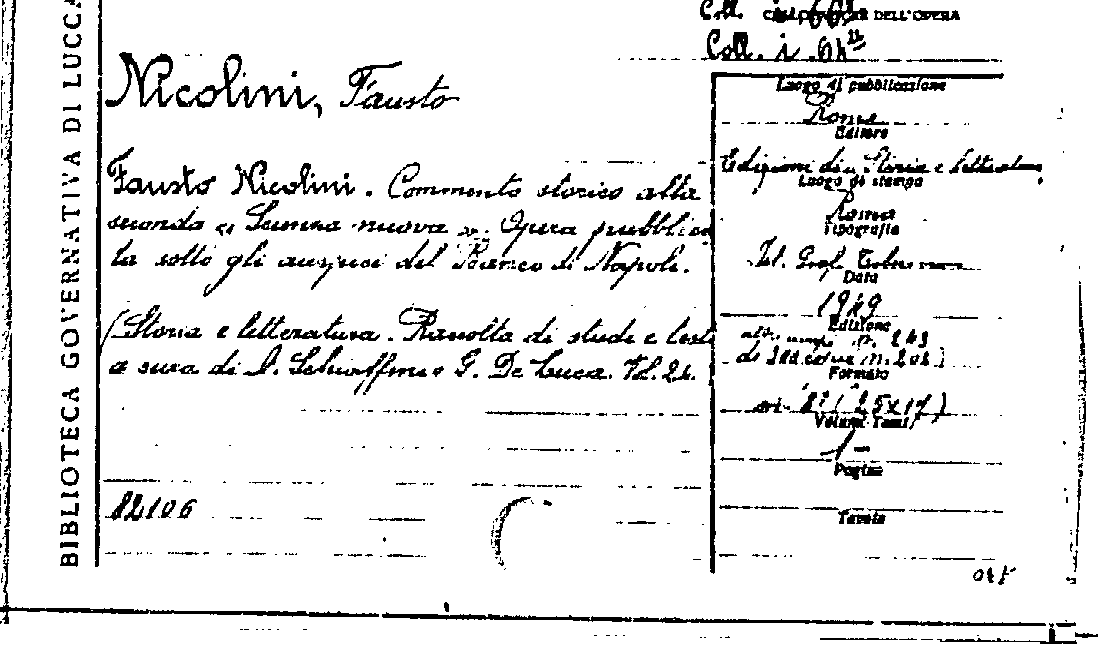 BIBLIOTECA GOVERNATIVA DI LUCCA
Coll.
DELL'OPERA
Coll. i .
Nicolini, Fausto
Fausto Nicolini. Commento storico alla
seconda « Scienza nuova ». Opera pubblica
ta sotto gli auspici del Banco di Napoli.
(Storia e letteratura. Raccolta di studi e testi
a cura di G. De Luca. Vol. 24.
12106
Luogo di pubblicazione
Roma
Editore
Edizioni di Storia e letteratura
Luogo di stampa
Roma
Tipografia
Ist. Graf. Tiberino
Data
1949
Edizione
Formato
in 8° (25x17)
Volumi-Tomi
1 -
Pagine
Tavole